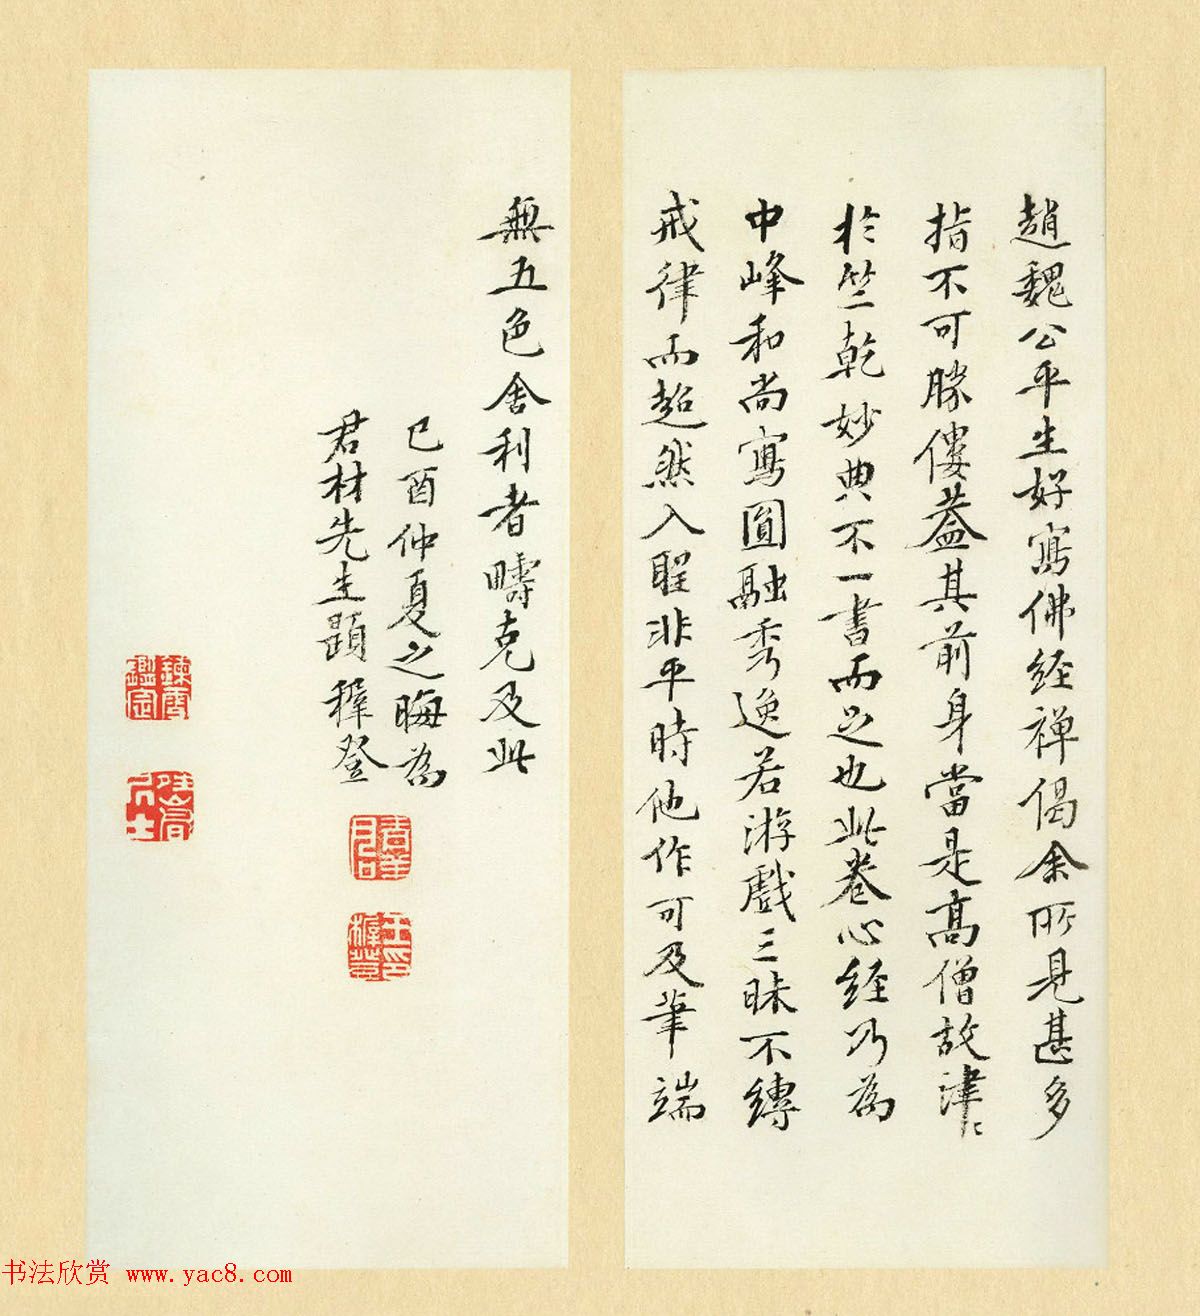 趙魏公平生好寫佛經禅偈余所見甚多
指不可勝僂葢其前身當是髙僧故津〻
於竺乾妙典不一書而足也此卷心經乃為
中峰和尚寫圓融秀逸若游戲三昧不縛
戒律而超然入聖非平時他作可及筆端
無五色舍利者疇克及此
己酉仲夏之晦為
君材先生題穉登
王印穉登
鑑定
书法欣赏 www.yac8.com